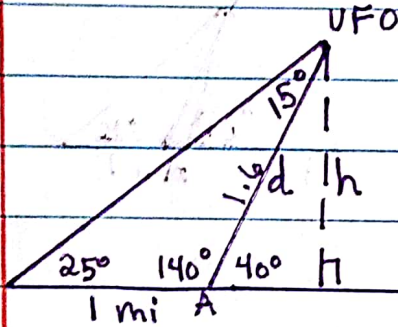 UFO
15°
1.6 d h
25° 140° 40°
1 mi A